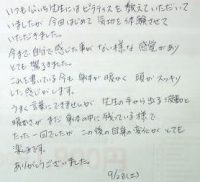 いつもならい先生にはピラティスを教えていただいて
いましたが 今回はじめて 気功を体験させて
いただきました。
今まで自分で感じた事がない様な感覚があり
とても驚きました。
これを書いている今も身体が暖かく 頭がスッキリ
した感じがします。
うまく言葉にできませんが 先生の手から出る波動と
暖かさが まだ身体の中に残っている様です
たった一回でしたが この後の自身の変化がとても
楽しみです。
ありがとうございました。
9/28(土)